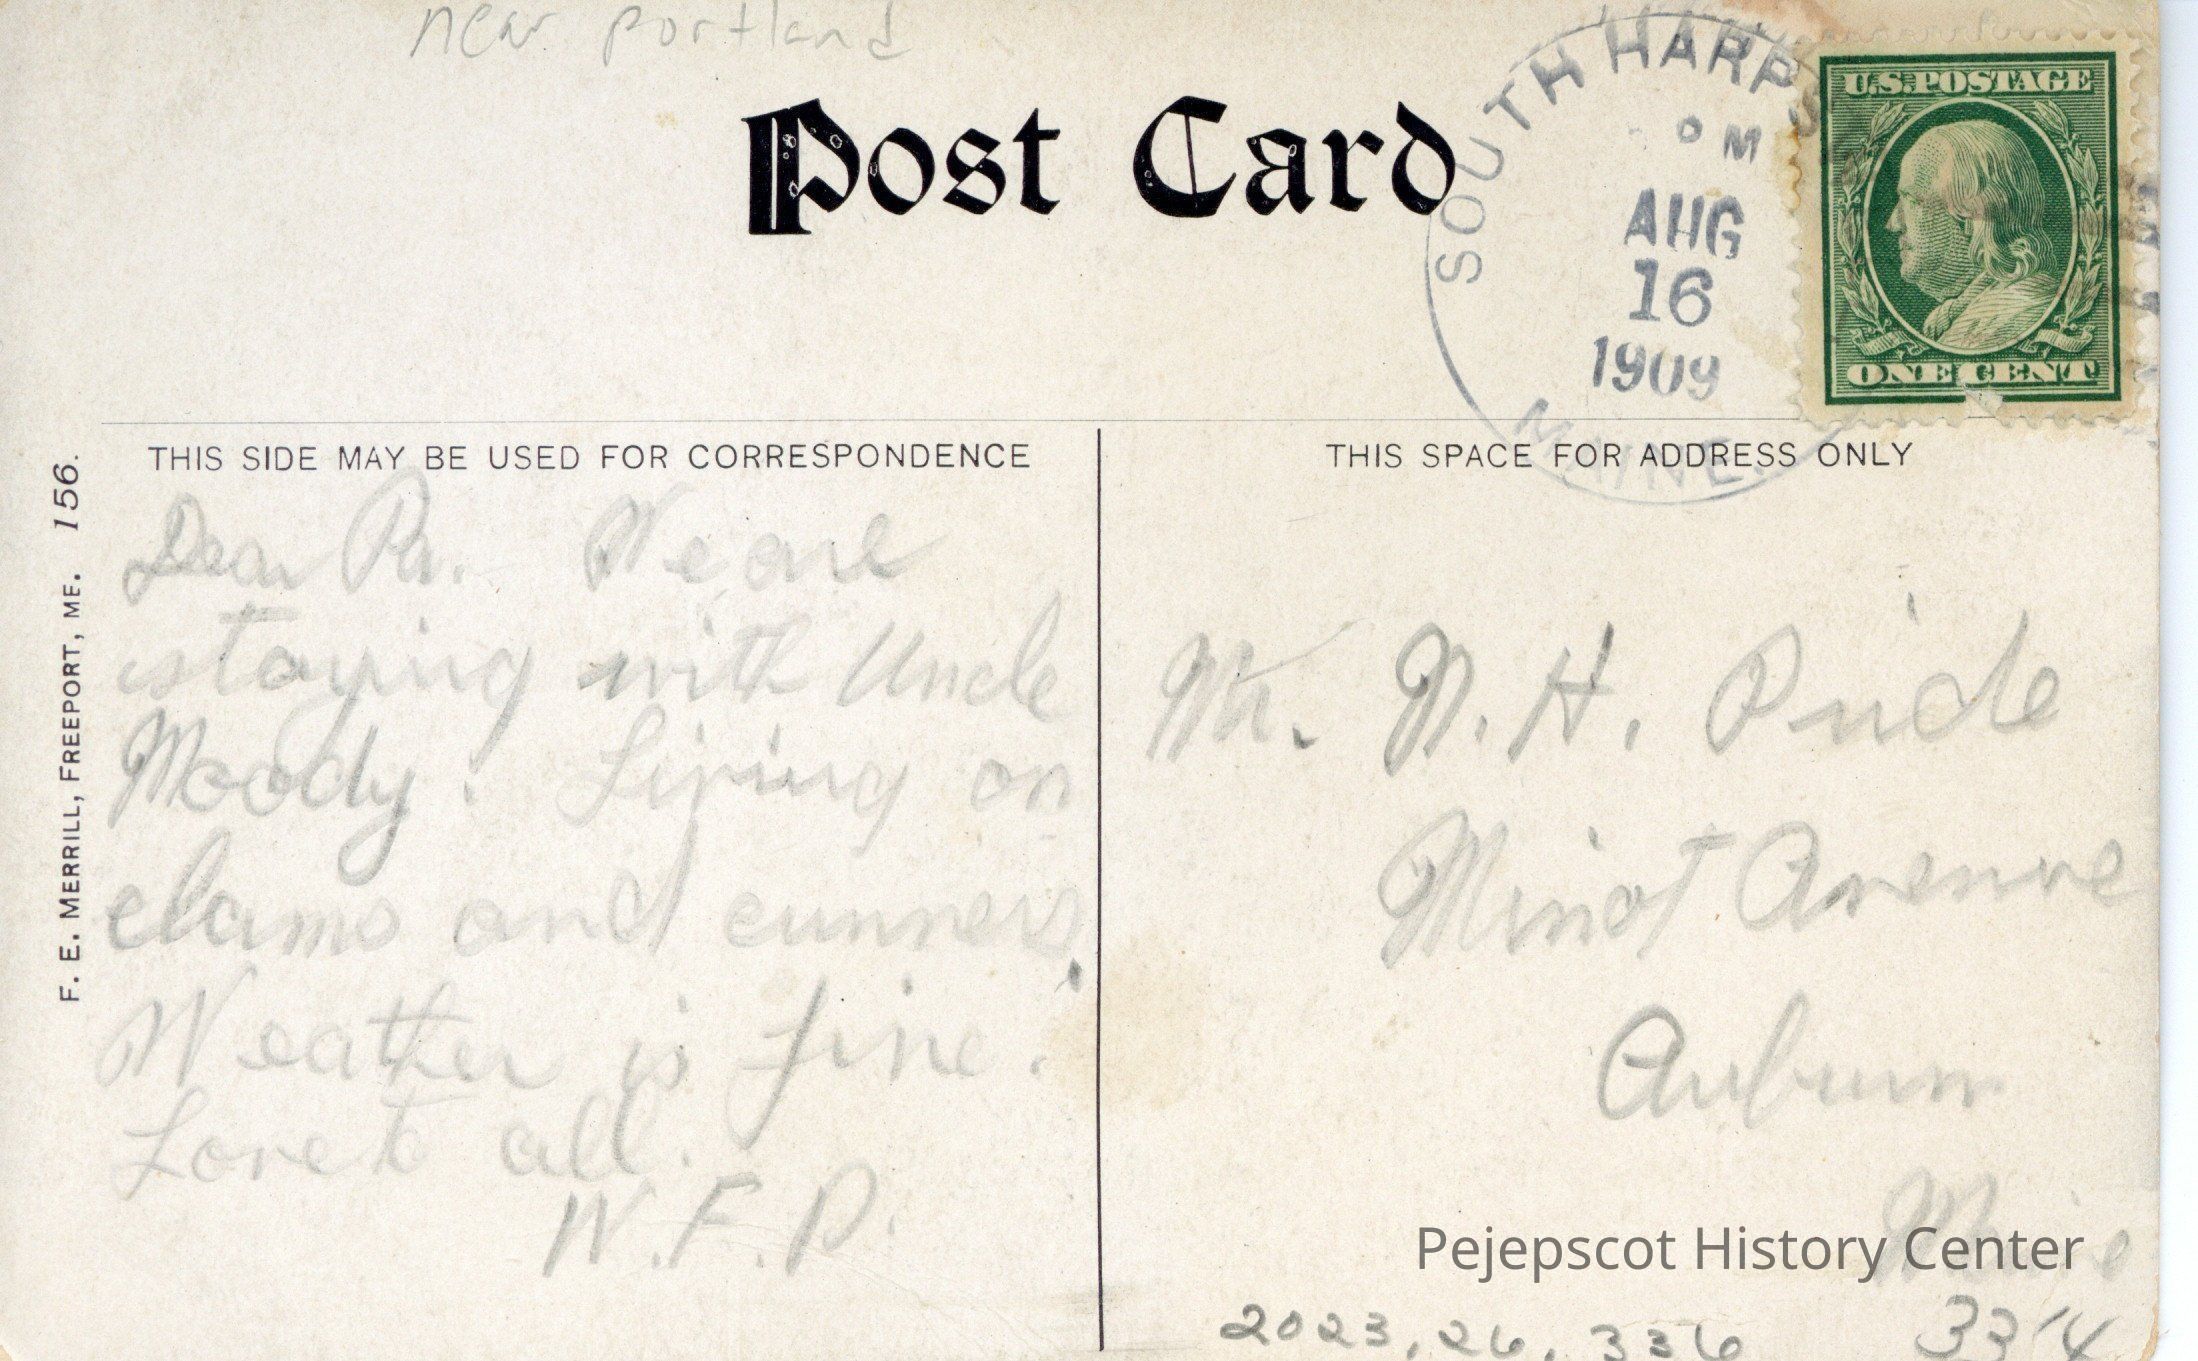 near portland
Post Card
SOUTH HARPS
M
AUG
16
1909
MAINE.
U.S. POSTAGE
ONE CENT
THIS SIDE MAY BE USED FOR CORRESPONDENCE
THIS SPACE FOR ADDRESS ONLY
F. E. MERRILL, FREEPORT, ME. 156.
Dear Pa. We are
staying with Uncle
Moody. Living on
clams and cunners.
Weather is fine.
Love to all.
W. F. P.
Mr. N. H. Pride
Minot Avenue
Auburn
Maine
Pejepscot History Center
2023.26.336